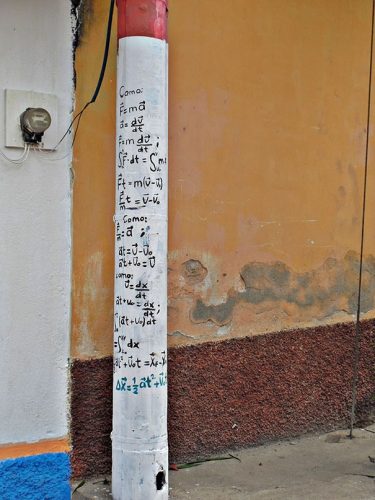 Como:
F⃗=ma⃗
a⃗=dv⃗/dt
F⃗=m dv⃗/dt;
∫F⃗·dt = ∫m
F⃗t=m(v⃗-v⃗
F⃗t/m=v⃗-v⃗₀
Como:
F⃗/m=a⃗;
a⃗t=v⃗-v⃗₀
a⃗t+v⃗₀=v⃗
Como:
v⃗=dx⃗/dt
a⃗t+v₀=dx⃗/dt;
∫(a⃗t+v⃗₀)dt
=∫dx
t²+v⃗₀t=x⃗f-x⃗
Δx⃗=½a⃗t²+v⃗₀t